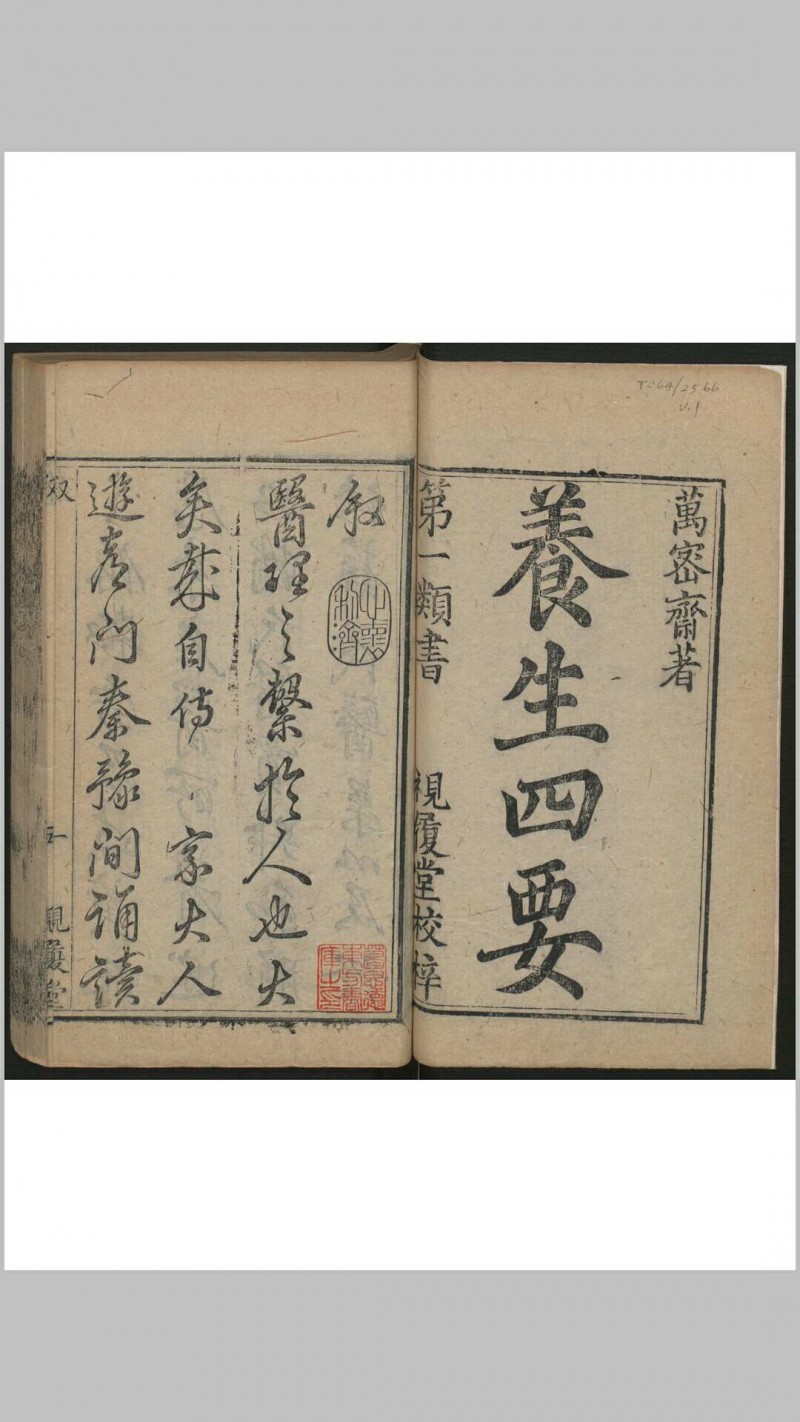 T 264/2566
V.1
萬宻齋著
養生四要
第一類書 視履堂校梓
叙
醫理之繫於人也大
矣哉自侍家大人
遊吉門秦豫間誦讀
叙 五 視履堂